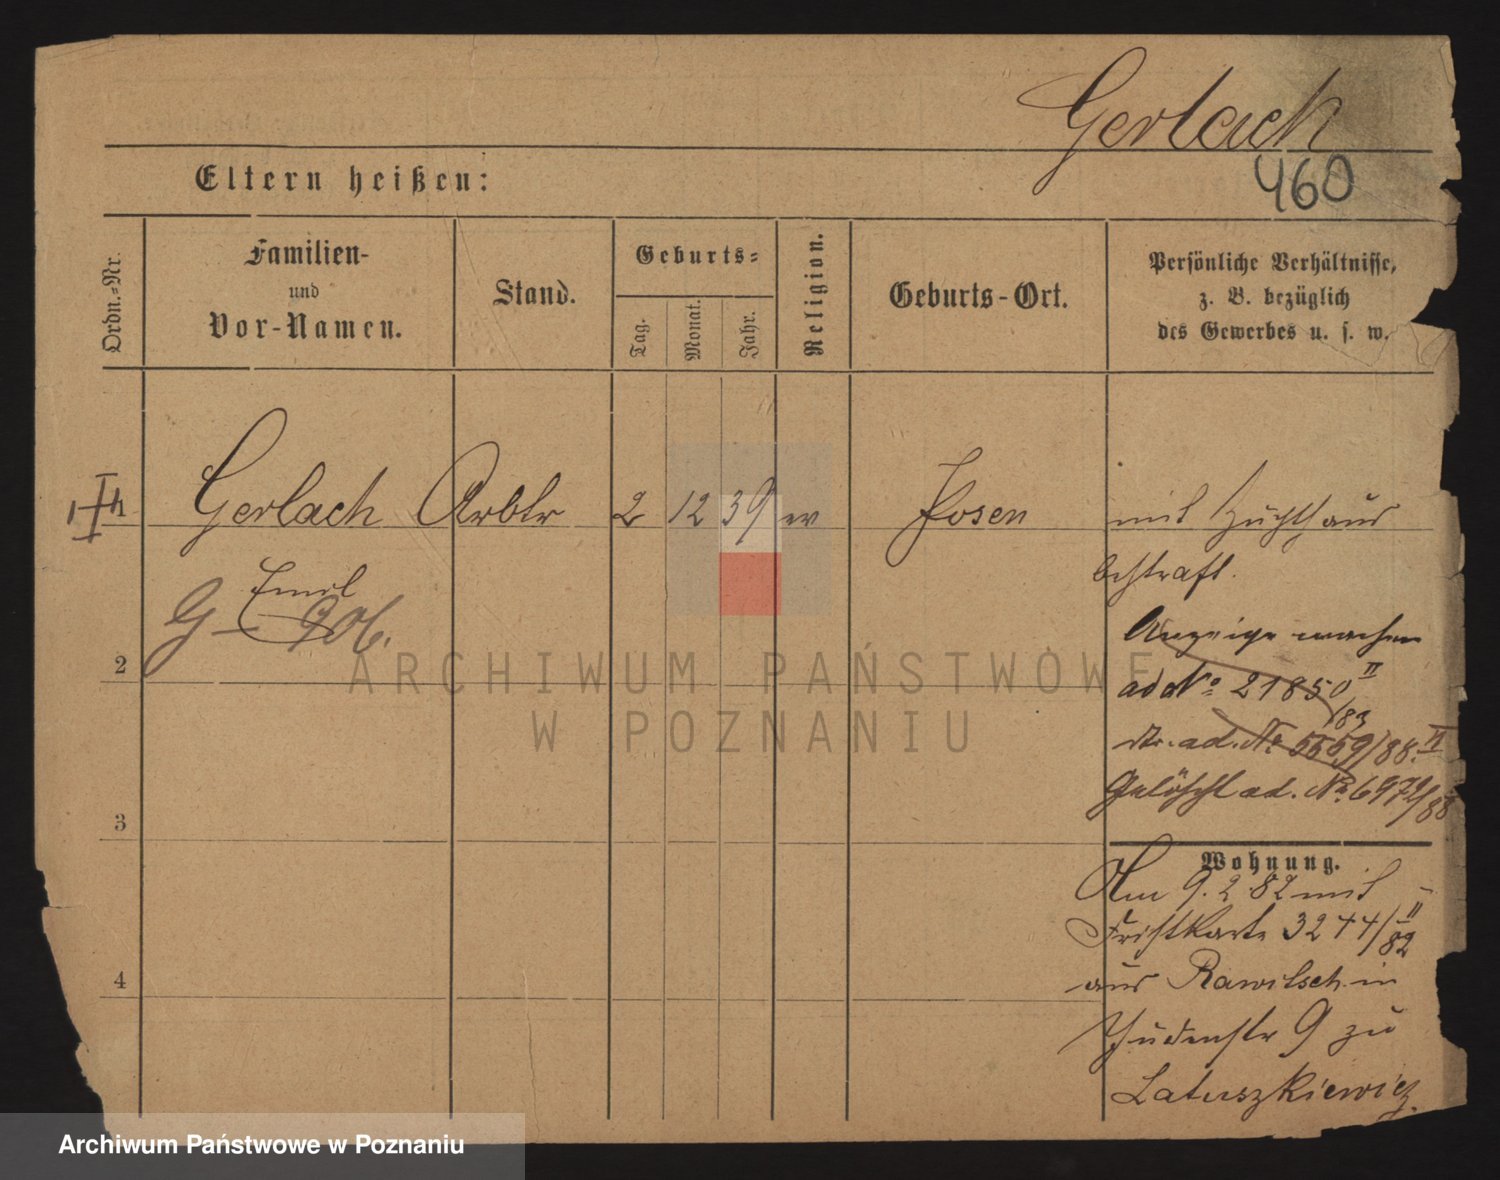 Gerlach
460
Eltern heißen:
Ordn.-Nr.
Familien-
und
Vor-Namen.
Stand.
Geburts-
Tag.
Monat.
Jahr.
Religion.
Geburts-Ort.
Persönliche Verhältnisse,
z. B. bezüglich
des Gewerbes u. s. w.
1 Gerlach Arbtr 2 12 39 ev Posen mit Zuchthaus
bestraft.
Emil
G – 906.
Anzeige machen
ad No 21850 II/83
ad. No 5559/88. II
Gelöscht ad. No 6972/88
2
3
4
Wohnung.
Am 9. 2 82 mit
Fristkarte 3244/II 82
aus Rawitsch in
Judenstr 9 zu
Latuszkiewicz.
ARCHIWUM PAŃSTWOWE
W POZNANIU
Archiwum Państwowe w Poznaniu